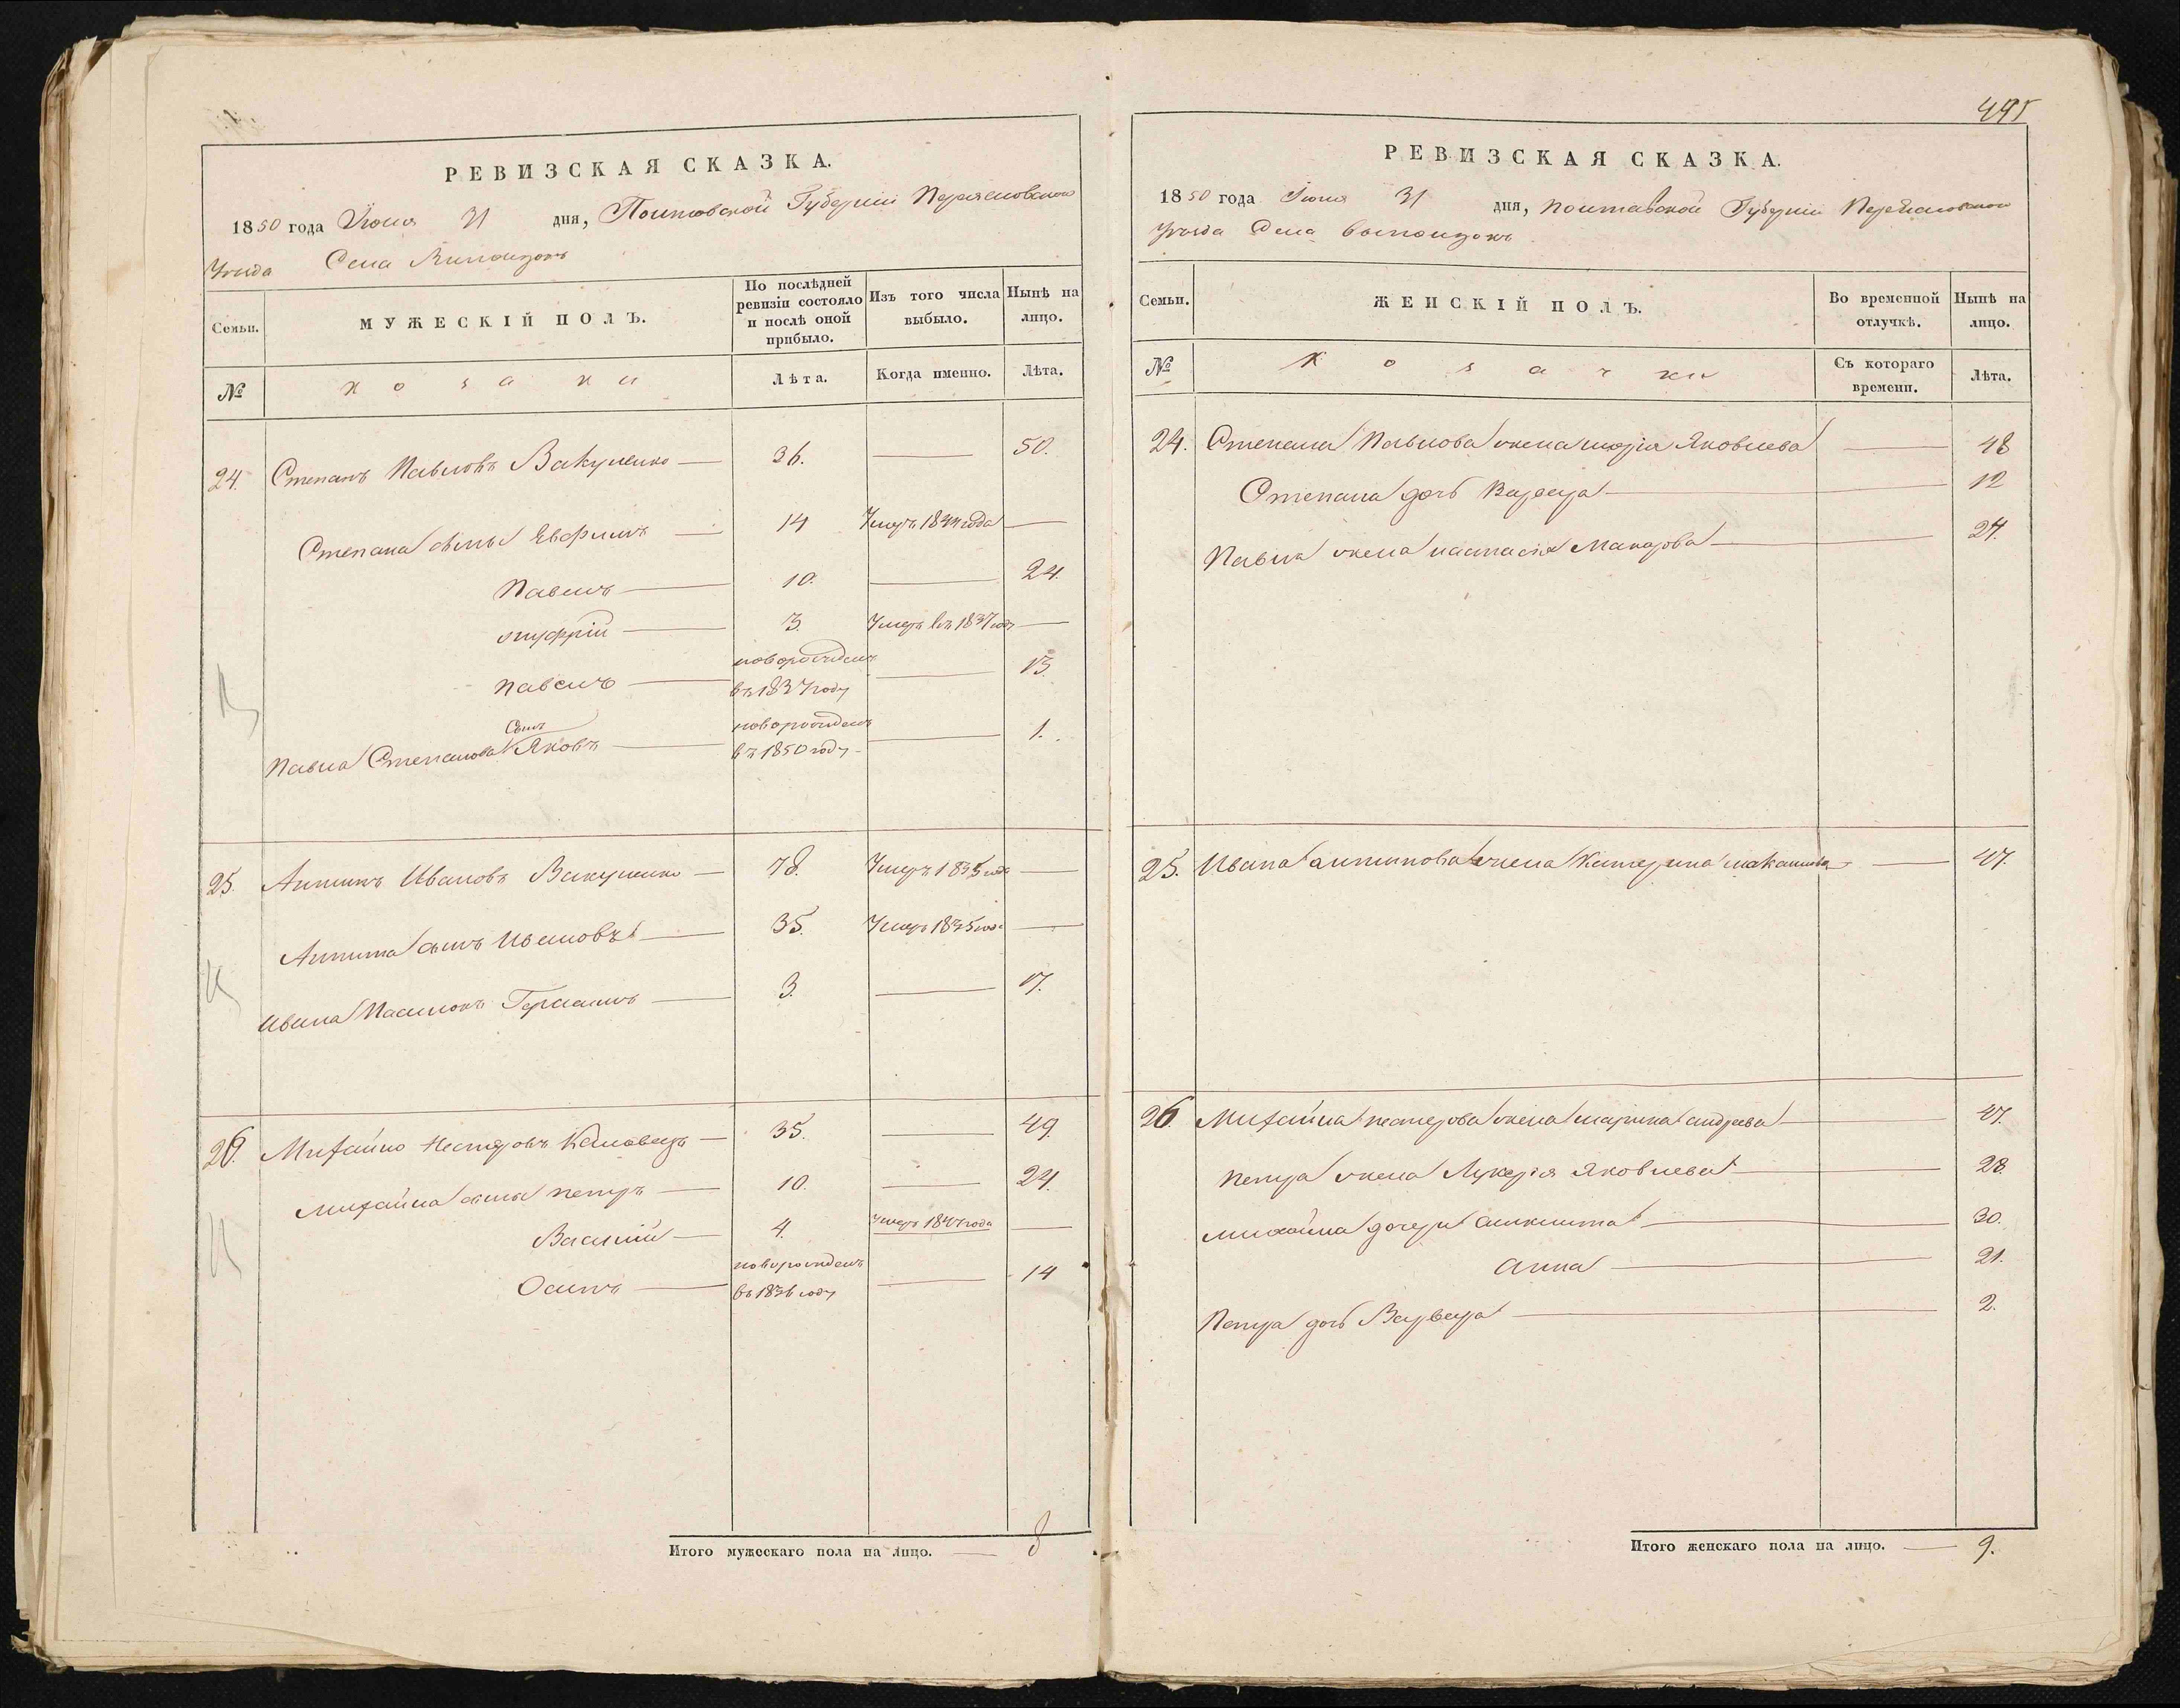 РЕВИЗСКАЯ СКАЗКА.
1850 года Июля 31 дня, Полтавской Губерніи Переяславского
Уезда Села
Семьи.
МУЖЕСКІЙ ПОЛЪ.
По послѣдней ревизіи состояло и послѣ оной прибыло.
Изъ того числа выбыло.
Нынѣ на лицо.
№
козаки
Лѣта.
Когда именно.
Лѣта.
24. Степанъ Павловъ Вакуленко — 36. — 50.
Степана сыны Евфимъ — 14 Умеръ 1844 года —
Павелъ — 10. — 24.
онуфрій — 3. Умеръ въ 1837 году —
Павелъ — новорожденъ въ 1837 году — 13.
Павла Степанова сынъ Яковъ — новорожденъ въ 1850 году — 1.
25. Антипъ Ивановъ Вакуленко — 78. Умеръ 1835 года —
Антипа сынъ Ивановъ — 35. Умеръ 1835 года —
Ивана Пасинокъ Герасимъ — 3. — 17.
26. Михайло Нестеровъ — 35. — 49.
Михайла сыны Петръ — 10. — 24.
Василій — 4. Умеръ года —
Осипъ — новорожденъ въ 1836 году — 14
Итого мужескаго пола на лицо. — 8
495
РЕВИЗСКАЯ СКАЗКА.
1850 года Июля 31 дня, Полтавской Губерніи Переяславского
Уезда Села
Семьи.
ЖЕНСКІЙ ПОЛЪ.
Во временной отлучкѣ.
Нынѣ на лицо.
№
козачки
Съ котораго времени.
Лѣта.
24. Степана Павлова жена марія Яковлева — 48
Степана дочь Варвара — 12
Павла жена настасія Макарова — 24.
25. Ивана антипова жена Катерина — 47.
26. Михайла нестерова жена марина андреева — 47.
Петра жена Лукерія Яковлева — 28.
михайла дочери — 30.
анна — 21.
Петра дочь Варвара — 2.
Итого женскаго пола на лицо. — 9.